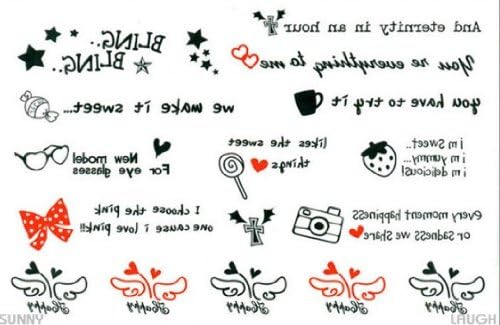 BLING..
BLING..
And eternity in an hour
You 're everything to me
we make it sweet...
you have to try it
New model
For eye glasses
likes the sweet
things
i m sweet..
i m yummy...
i m delicious!
I choose the pink
one cause i love pink!!
every moment happiness
or sadness we share
Happy
Happy
Happy
Happy
Happy
SUNNY
LAUGH